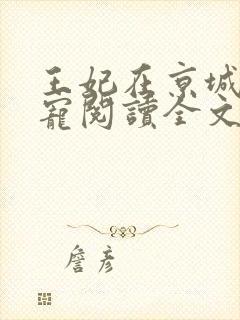 王妃在京城
寵閱讀全文
詹彥